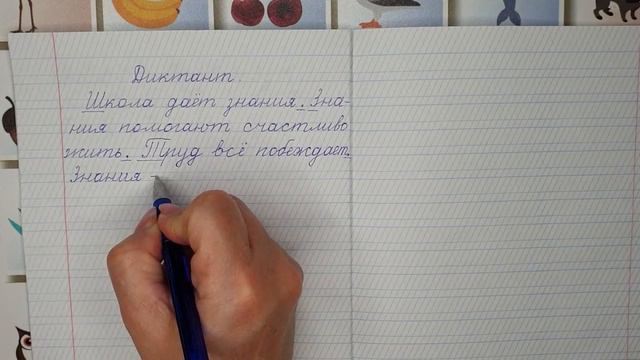 Диктант.
Школа даёт знания. Зна-
ния помогают счастливо
жить. Труд всё побеждает.
Знания -